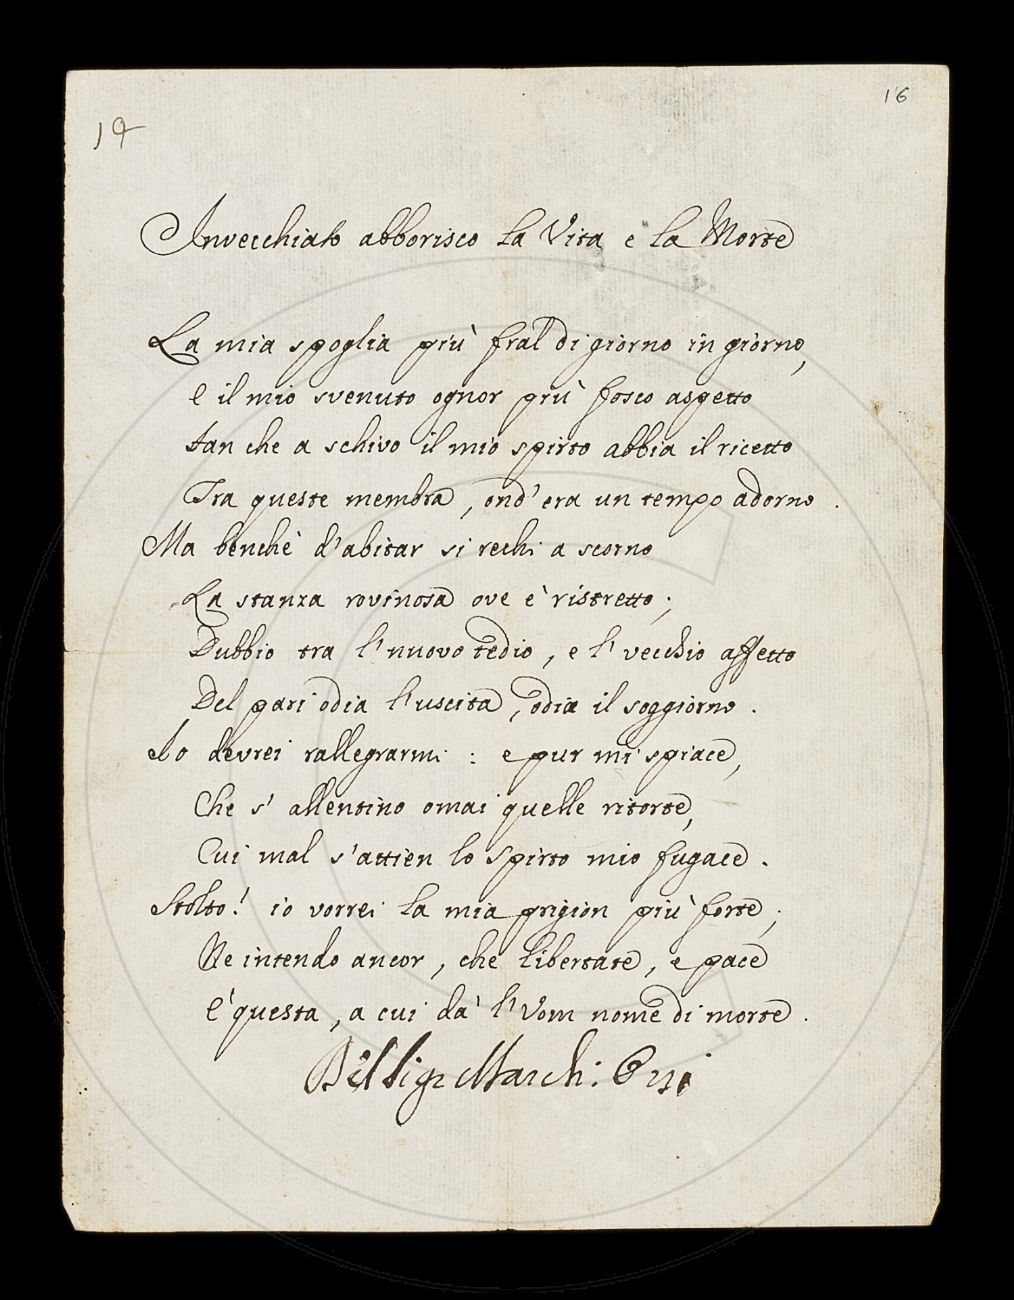 16
19
Invecchiato abborisco la Vita e la Morte
La mia spoglia più fral di giorno in giorno,
E il mio svenuto ognor più fosco aspetto
Fan che a schivo il mio spirto abbia il ricetto
Tra queste membra, ond'era un tempo adorno.
Ma benchè d'abitar si rechi a scorno
La stanza rovinosa ove è ristretto;
Dubbio tra l'nuovo tedio, e l'vecchio affetto
Del pari odia l'uscita, odia il soggiorno.
Io devrei rallegrarmi: e pur mi spiace,
Che s'allentino omai quelle ritorte,
Cui mal s'attien lo spirto mio fugace.
Stolto! io vorrei la mia prigion più forte;
Ne intendo ancor, che libertate, e pace
E'questa, a cui dà l'Uom nome di morte.
Del Sigr March: Orsi